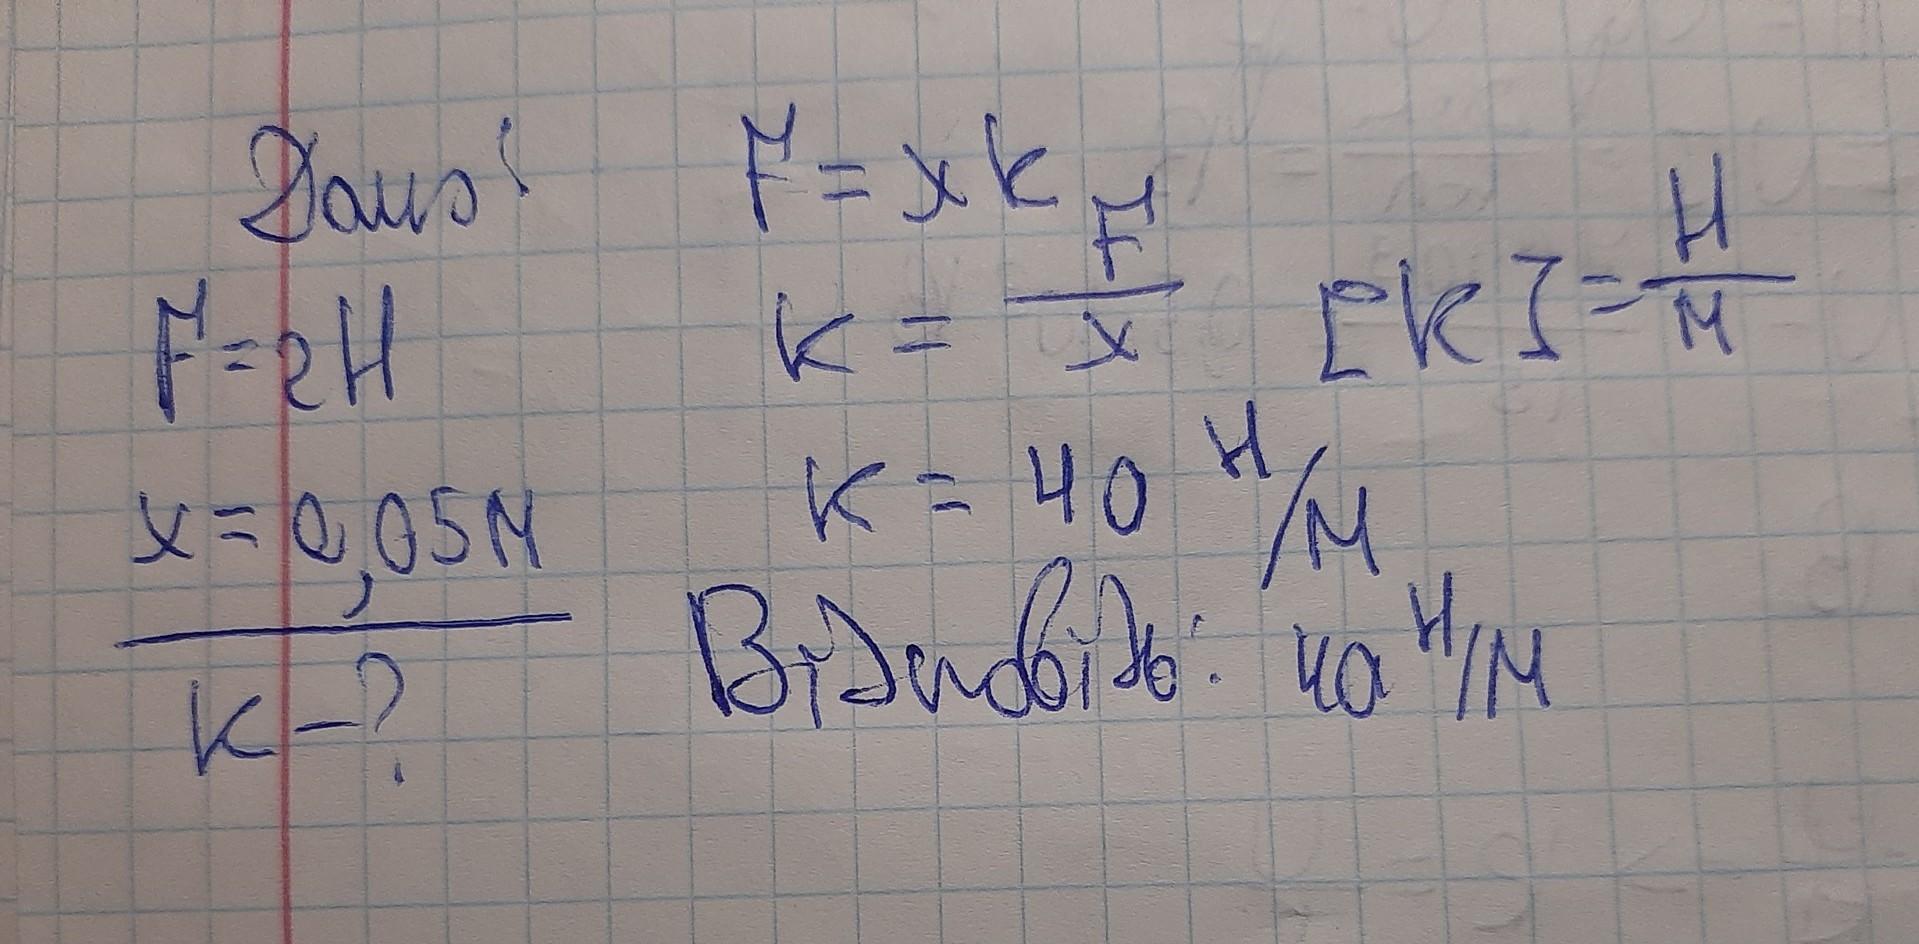 Дано:
F=2Н
x=0,05м
K-?
F=xk
K=F/x [K]=Н/м
K=40 Н/м
Відповідь: 40 Н/м